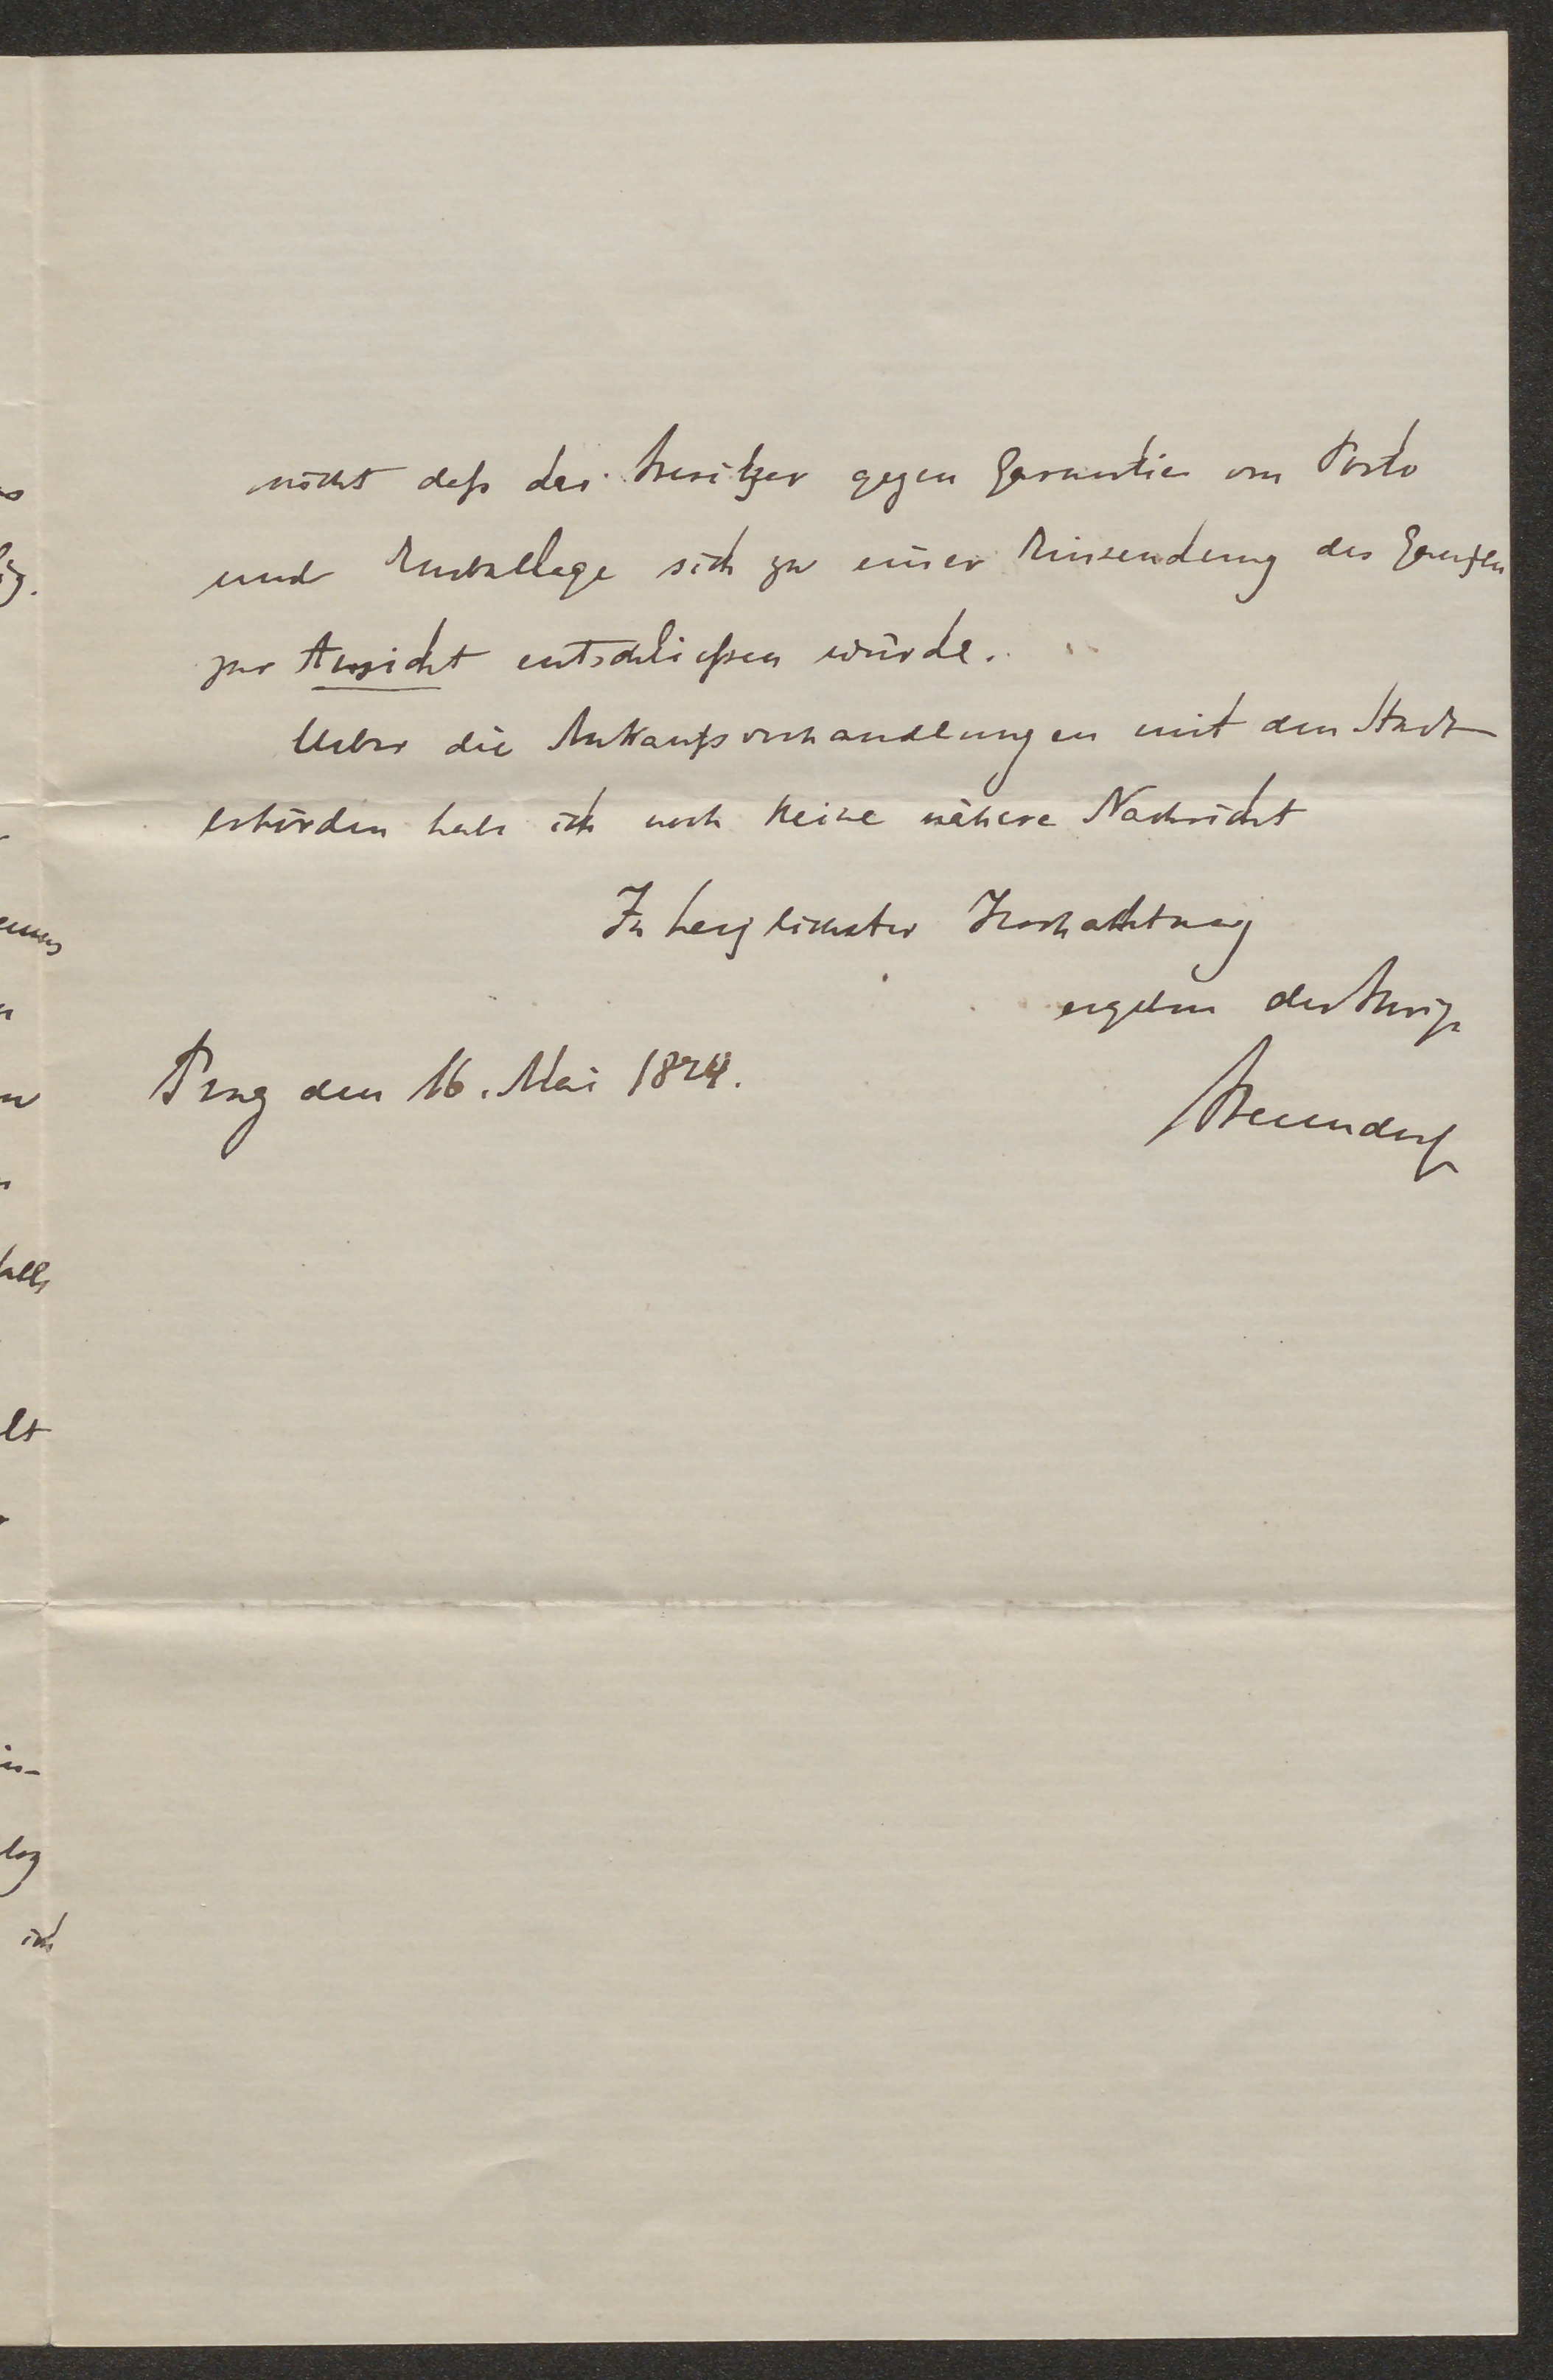 nicht daß der Besitzer gegen Garantie von Porto
und Emballage sich zu einer Einsendung des Ganzen
zur Ansicht entschließen würde.
Ueber die Ankaufsverhandlungen mit den Stadt
behörden habe ich noch keine nähere Nachricht
In herzlichster Hochachtung
ergebenst der Ihrige
Prag den 16. Mai 1874.
Benndorf